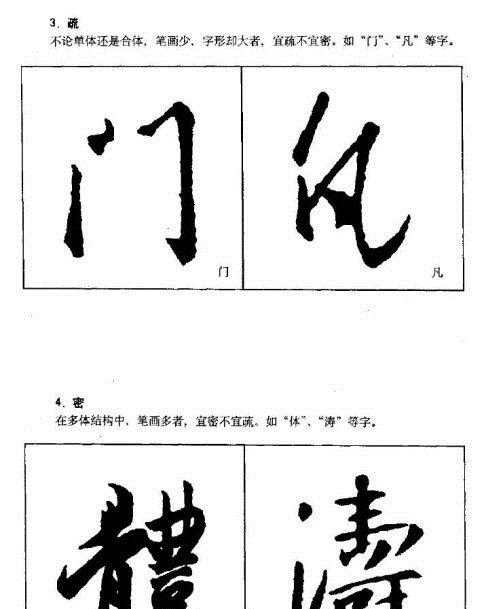 3. 疏
不论单体还是合体，笔画少，字形却大者，宜疏不宜密。如“门”、“凡”等字。
门 凡
门 凡
4. 密
在多体结构中，笔画多者，宜密不宜疏。如“体”、“涛”等字。
體 濤